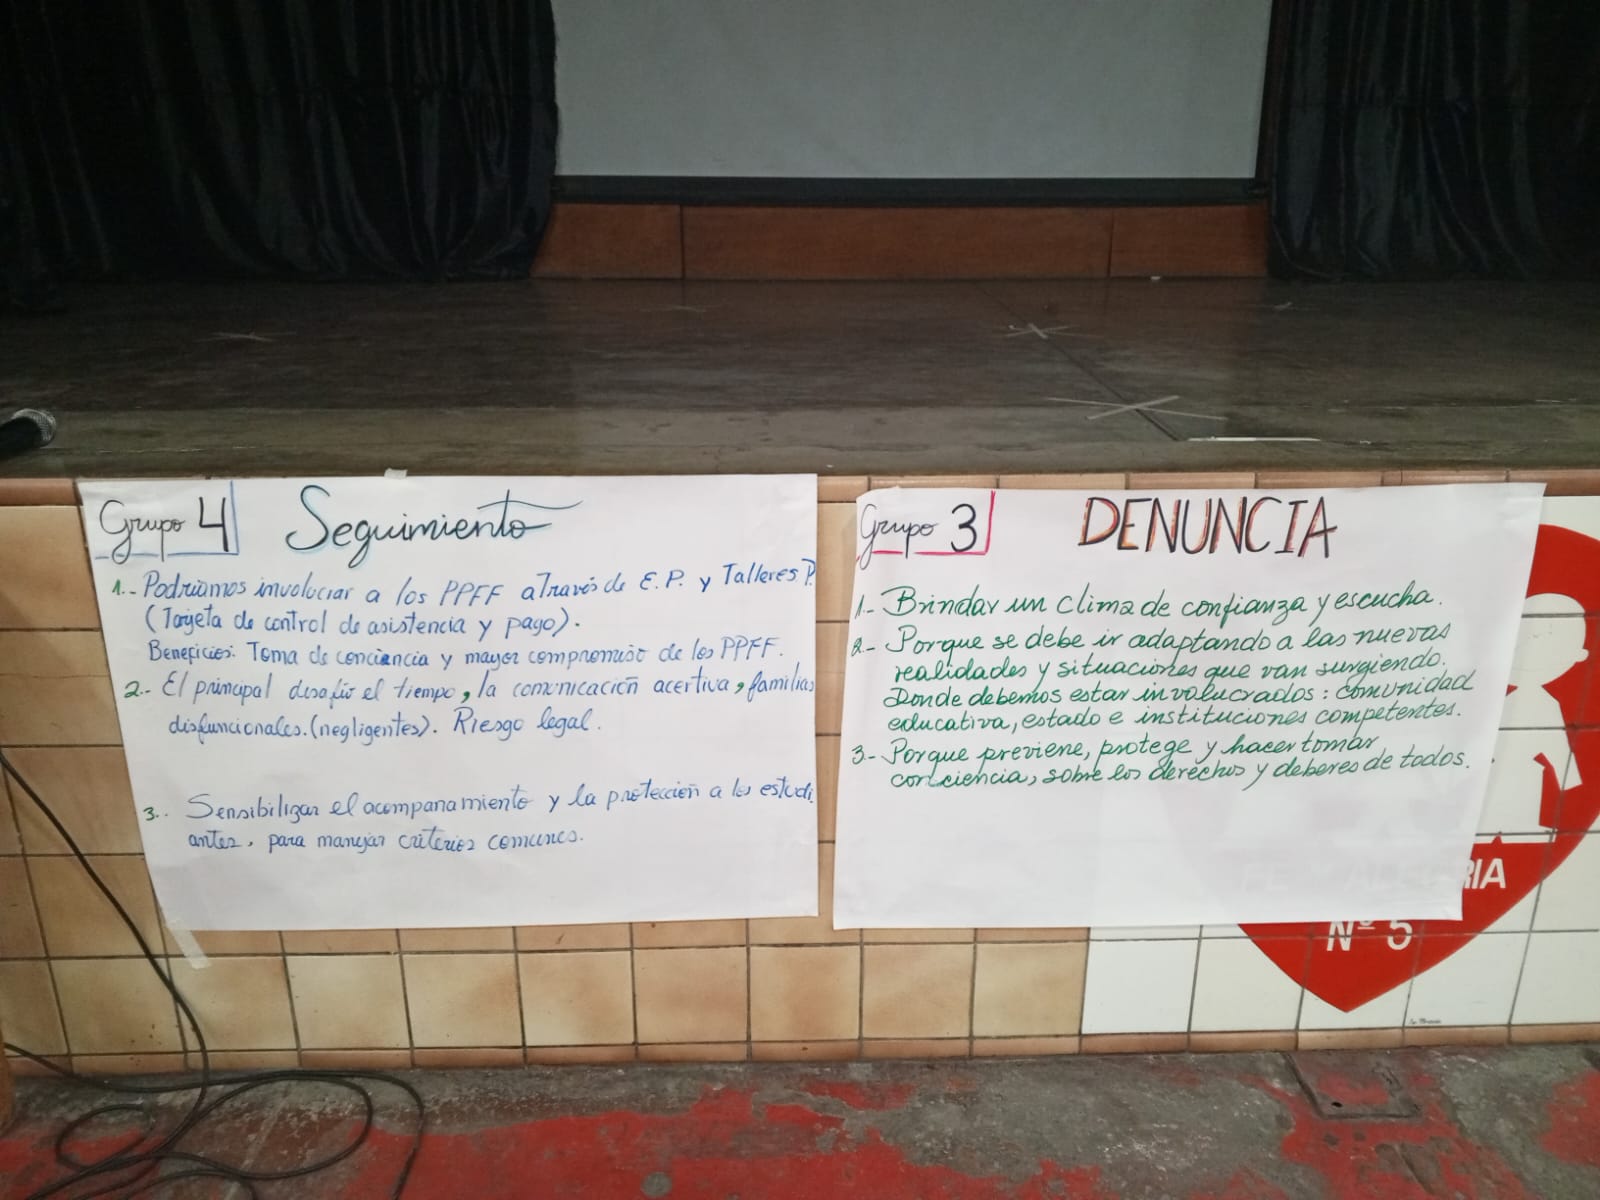 Grupo 4
Seguimiento
1.- Podriamos involucrar a los PPFF a Través de E.P. y Talleres P.
(Tarjeta de control de asistencia y pago).
Beneficios: Toma de conciencia y mayor compromiso de los PPFF.
2.- El principal desafio el tiempo, la comunicación acertiva, familias
disfuncionales. (negligentes). Riesgo legal.
3.. Sensibilizar el acompanamiento y la protección a los estudi
antes, para manejar criterios comunes.
Grupo 3
DENUNCIA
1.- Brindar un clima de confianza y escucha.
2.- Porque se debe ir adaptando a las nuevas
realidades y situaciones que van surgiendo.
Donde debemos estar involucrados: comunidad
educativa, estado e instituciones competentes.
3.- Porque previene, protege y hacer tomar
conciencia, sobre los derechos y deberes de todos.
FE Y ALEGRIA
Nº 5